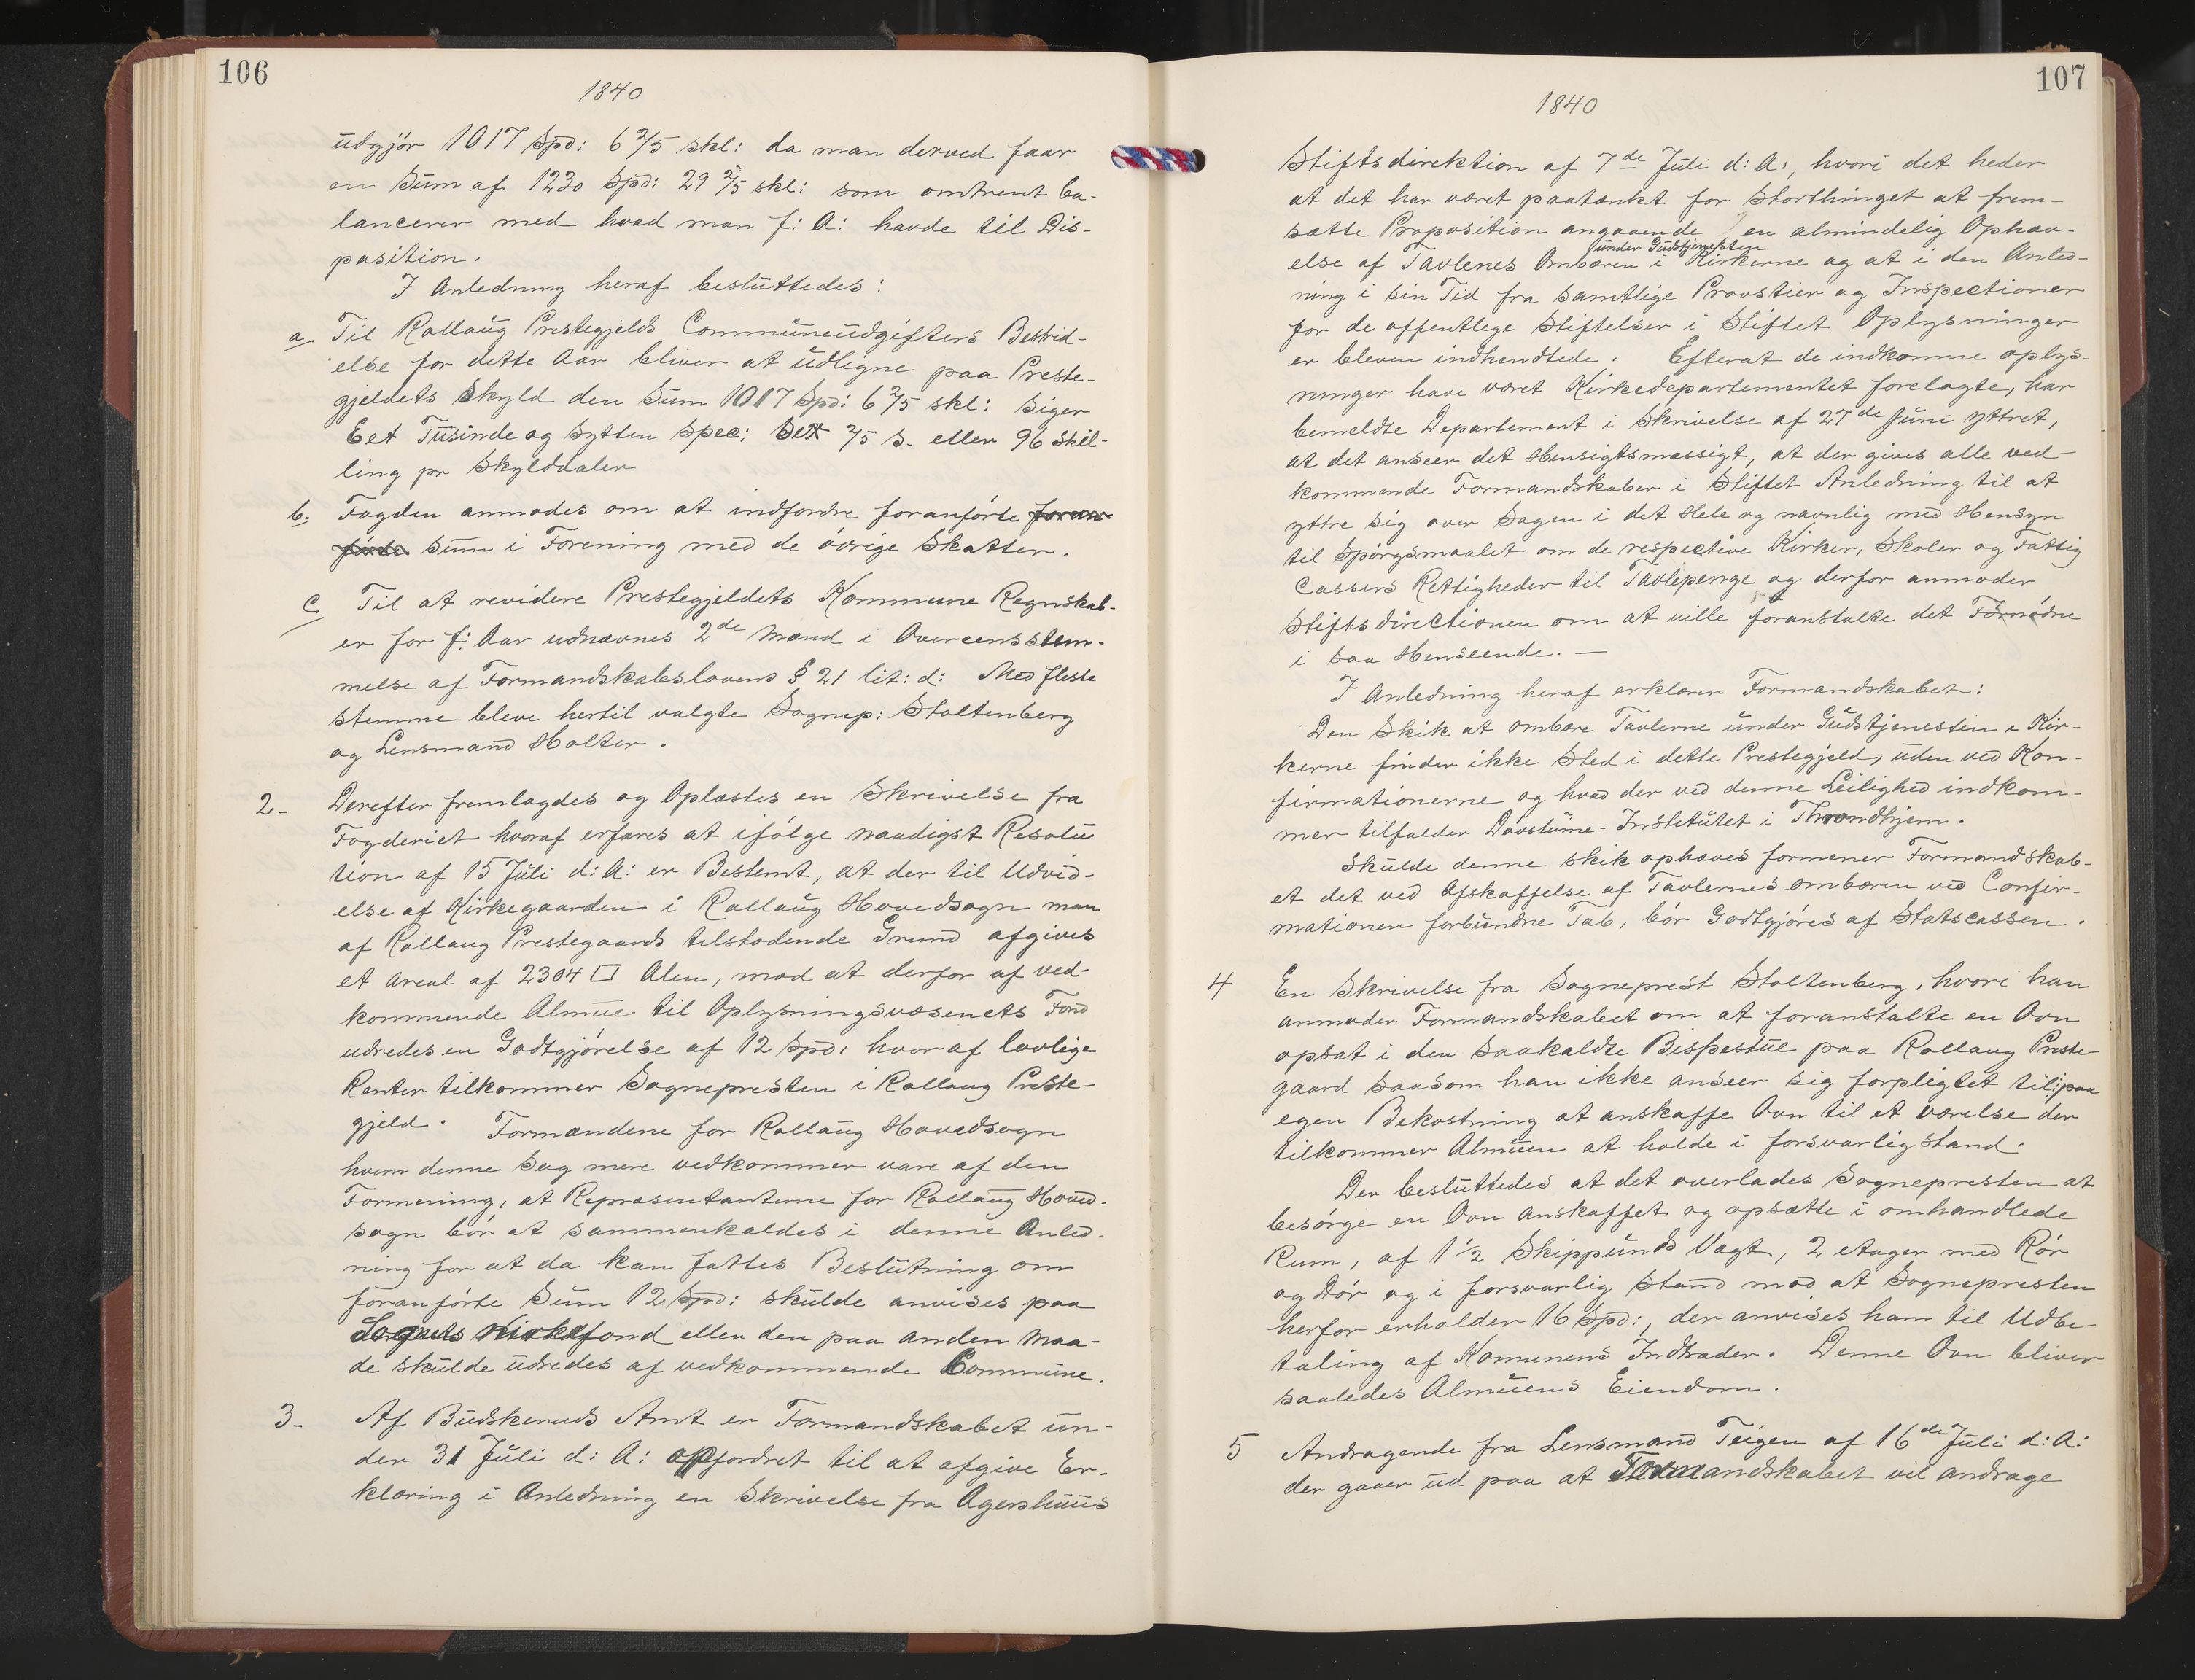 106
1840
udgjör 1017 Spd: 6 2/5 skl: da man derved faar
en Sum af 1230 Spd: 29 2/5 skl: som omtrent ba-
lancerer med hvad man f: A: havde til Dis-
position.
I Anledning heraf besluttedes:
a. Til Rollaug Prestegjelds Communeudgifters Bestrid-
else for dette Aar bliver at udligne paa Preste-
gjeldets Skyld den Sum 1017 Spd: 6 2/5 skl: siger
Eet Tusinde og Sytten Spec: Sex 2/5 s. eller 96 Skil-
ling pr Skylddaler
b. Fogden anmodes om at indfordre foranførte foran-
førde Sum i Forening med de øvrige Skatter.
c Til at revidere Prestegjeldets Kommune Regnskab-
er for f: Aar udnævnes 2de Mænd i Overeensstem-
melse af Formandskabslovens § 21 lit: d: Med fleste
stemme bleve hertil valgte Sognep: Stoltenberg
og Lensmand Holter.
2- Derefter fremlagdes og Oplæstes en Skrivelse fra
Fogderiet hvoraf erfares at ifølge naadigst Resolu
tion af 15 Juli d: A: er Bestemt, at der til Udvid-
else af Kirkegaarden i Rollaug Hovedsogn man
af Rollaug Prestegaards tilstødende Grund afgives
et Areal af 2304 □ Alen, mod at derfor af ved-
kommende Almue til Oplysningsvæsenets Fond
udredes en Godtgjørelse af 12 Spd: hvoraf lovlige
Renter tilkommer Sognepresten i Rollaug Preste-
gjeld. Formændene for Rollaug Hovedsogn
hvem denne Sag mere vedkommer vare af den
Formening, at Repræsentanterne for Rollaug Hoved-
sogn bør at sammenkaldes i denne Anled-
ning for at da kan fattes Beslutning om
foranførte Sum 12 Spd: skulde anvises paa
Sognets Kirkefond eller den paa anden Maa-
de skulde udredes af vedkommende Commune.
3- Af Budskeruds Amt er Formandskabet un-
der 31 Juli d: A: opfordret til at afgive Er-
klæring i Anledning en Skrivelse fra Agershuus
107
1840
Stiftsdirektion af 7de Juli d: A:, hvori det heder
at det har været paatænkt for Storthinget at frem-
sætte Proposition angaaende en almindelig Ophæv-
under Gudstjenesten
else af Tavlenes Ombæren i Kirkerne og at i den Anled-
ning i sin Tid fra samtlige Provstier og Inspectioner
for de offentlege Stiftelser i Stiftet Oplysninger
er bleven indhendtede. Efterat de indkomne oplys-
ninger have været Kirkedepartementet forelagte, har
bemeldte Departement i Skrivelse af 27de Juni yttret,
at det anseer det Hensigtsmæssigt, at der gives alle ved-
kommende Formandskaber i Stiftet Anledning til at
yttre sig over Sagen i det Hele og navnlig med Hensyn
til Spörgsmaalet om de respective Kirker, Skoler og Fattig
Cassers Rettigheder til Tavlepenge og derfor anmoder
Stiftsdirectionen om at ville foranstalte det Fornødne
i saa Henseende. —
I Anledning heraf erklærer Formandskabet:
Den Skik at ombære Tavlerne under Gudstjenesten i Kir-
kerne finder ikke Sted i dette Prestegjeld, uden ved Kon-
firmationerne og hvad der ved denne Leilighed indkom-
mer tilfalder Døvstume-Institutet i Throndhjem.
Skulde denne skik ophæves formener Formandskab-
et det ved Afskaffelse af Tavlernes ombæren ved Confir-
mationen forbundne Tab, bör Godtgjöres af Statscassen.
4 En Skrivelse fra Sogneprest Stoltenberg, hvori han
anmoder Formandskabet om at foranstalte en Ovn
opsat i den saakaldte Bispestue paa Rollaug Preste
gaard saasom han ikke anseer sig forpligtet til: paa
egen Bekostning at anskaffe Ovn til et værelse der
tilkommer Almuen at holde i forsvarlig stand.
Der besluttedes at det overlades Sognepresten at
besørge en Ovn anskaffet og opsætte i omhandlede
Rum, af 1 1/2 Skippunds Vægt, 2 etager med Rör
og Dör og i forsvarlig Stand mod at Sognepresten
herfor erholder 16 Spd:, der anvises ham til Udbe
taling af Komunens Indtræder. Denne Ovn bliver
saaledes Almuens Eiendom.
5 Andragende fra Lensmand Teigen af 16de Juli d: A:
der gaaer ud paa at Formandskabet vil andrage